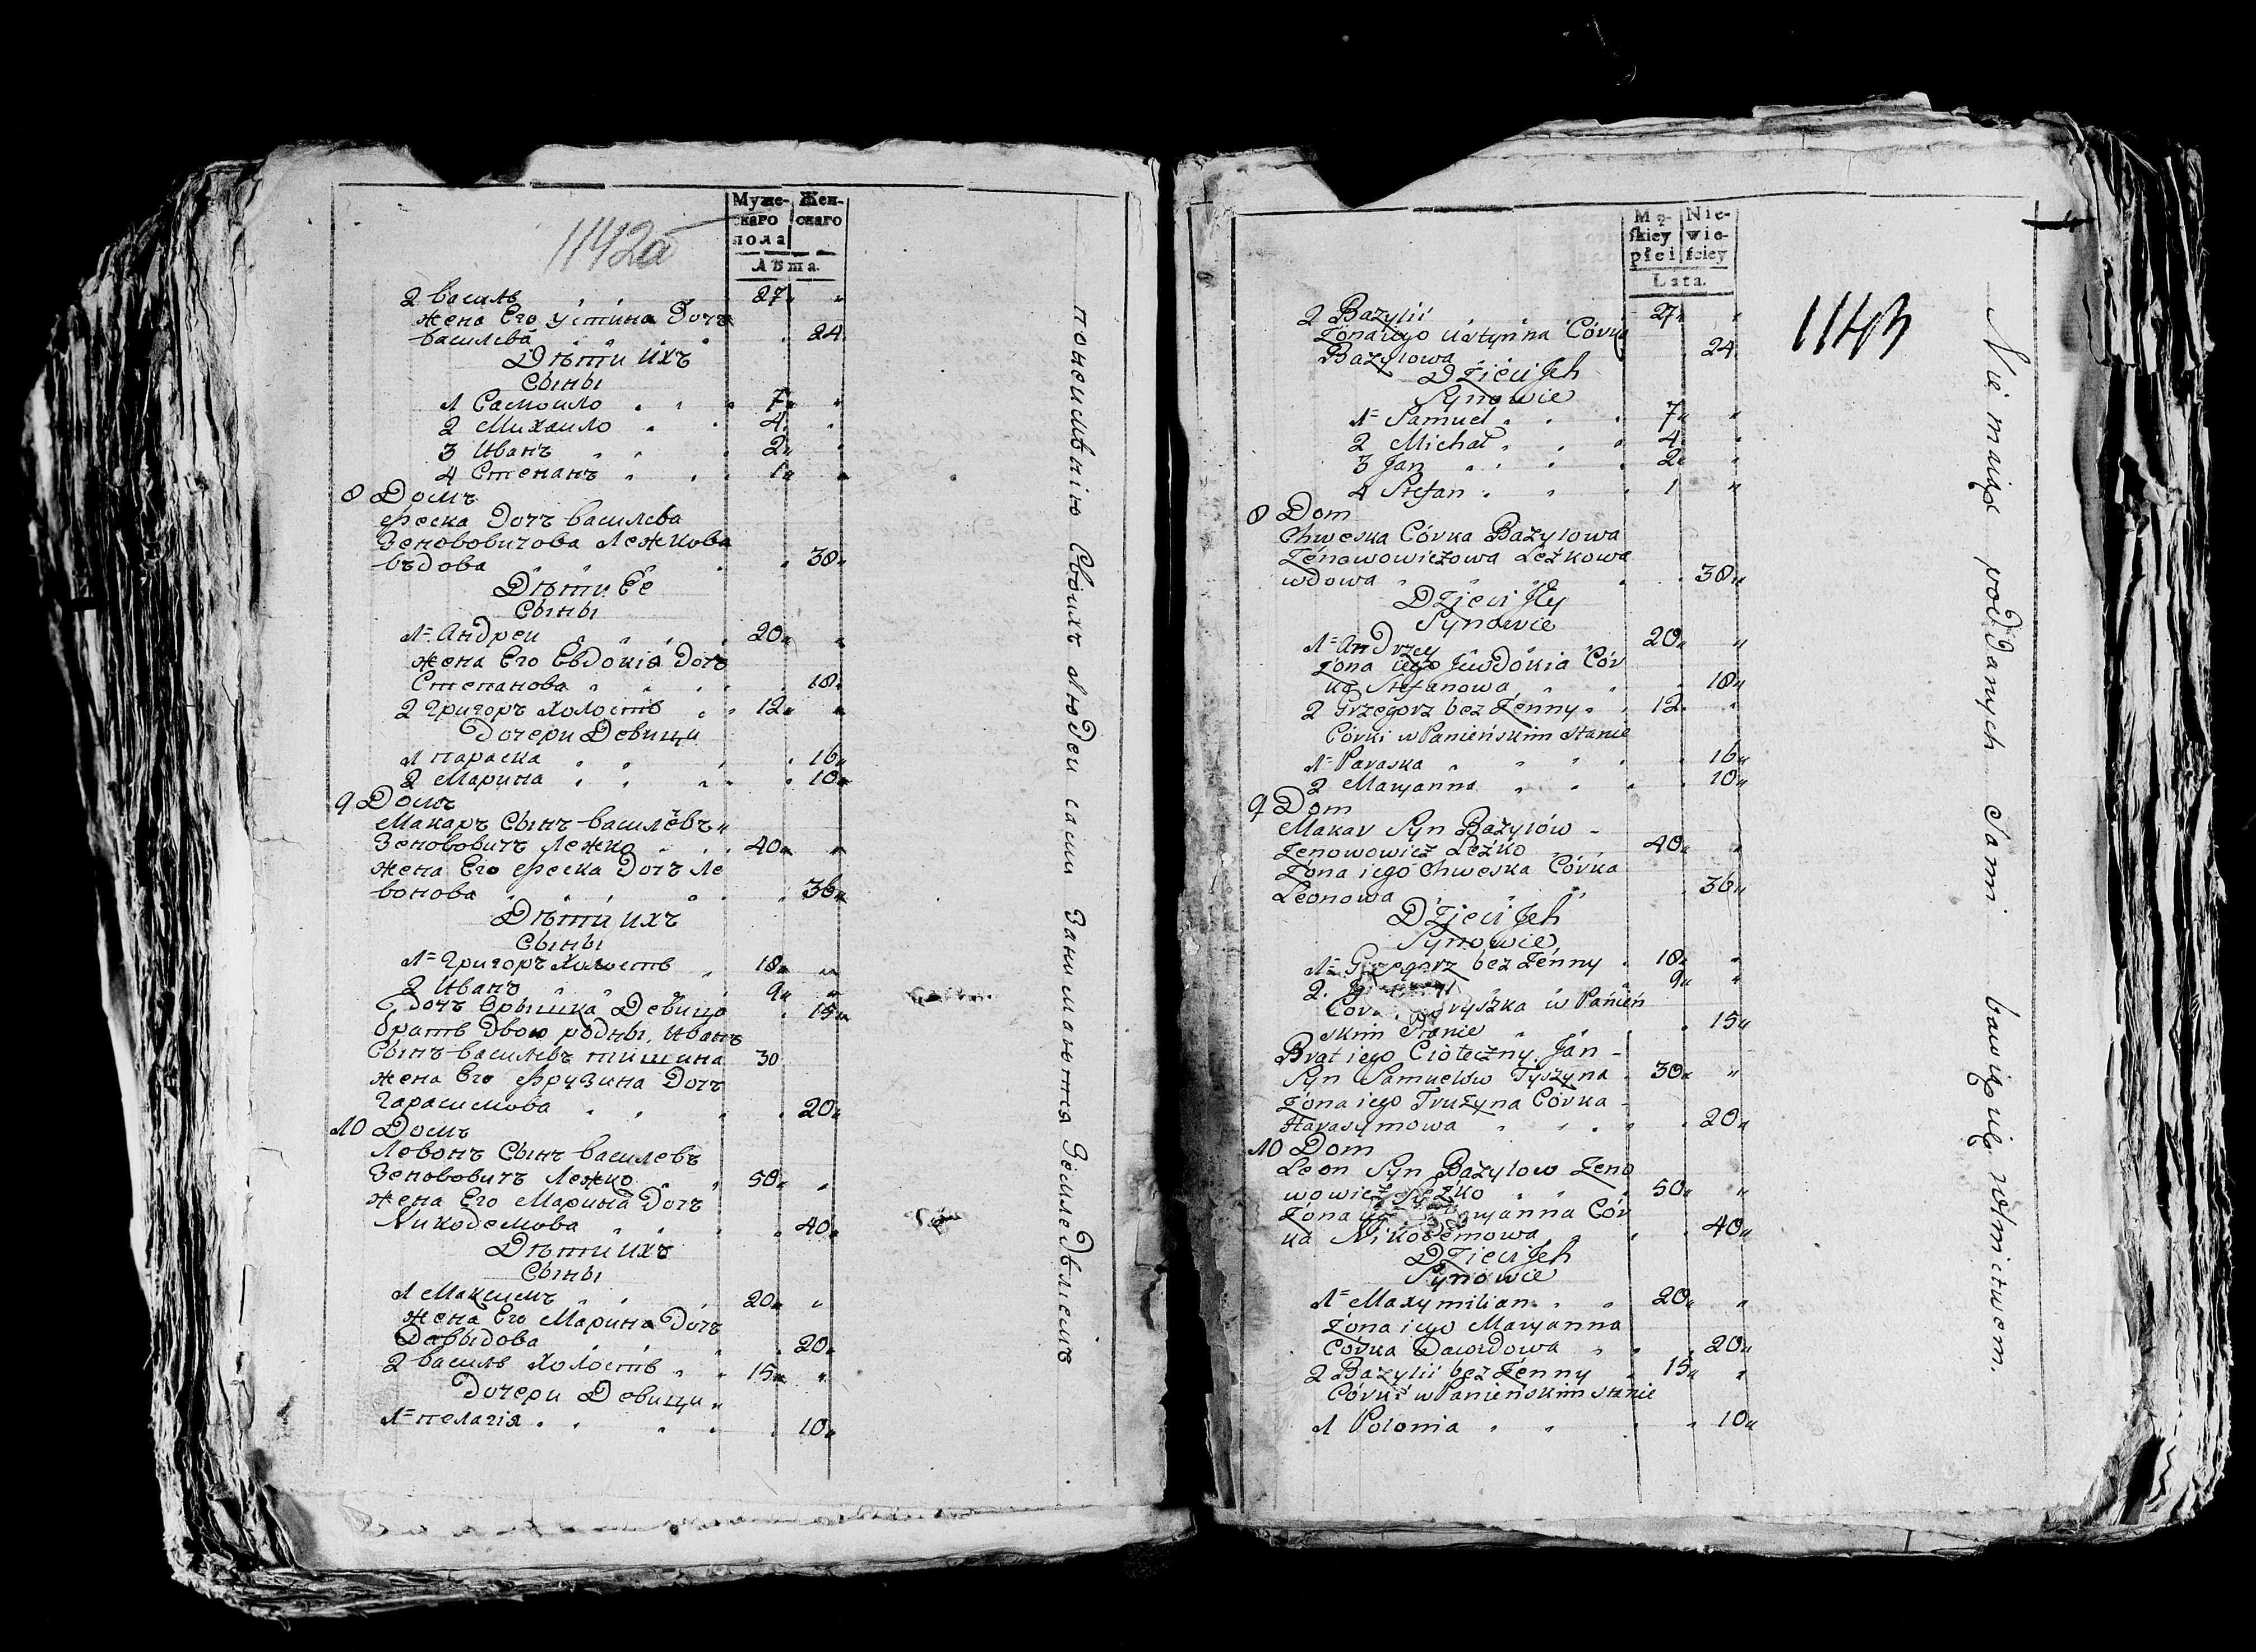 1142а
Муже- Жен-
скаго скаго
пола
Лѣта.
2 василь 27
жена Его устина Дочъ
василева 24
Дѣти ихъ
Сыны
1 Самоило 7
2 Михаило 4
3 Иванъ 2
4 Степанъ 1
8 Домъ
феска Дочъ василева
Зенововичова Лежкова
въдова 38
Дѣти Ее
Сыны
1 Андреи 20
жена Его Евдокія Дочъ
Степанова 18
2 Григоръ холостъ 12
Дочери Девици
1 параска 16
2 Марина 10
9 Домъ
Макаръ Сынъ василёвъ
Зенововичъ Лежко 40
жена Его феска Дочъ Ле
вонова 36
Дѣти ихъ
Сыны
1 Григоръ холостъ 18
2 Иванъ 9
Дочъ Орышка Девица 15
братъ двою родны, Иванъ
Сынъ василевъ тишина 30
жена Его фрузина Дочъ
Гарасимова 20
10 Домъ
Левонъ Сынъ василевъ
Зенововичъ Лежко 50
жена Его Марина Дочъ
Никодемова 40
Дѣти ихъ
Сыны
1 Максимъ 20
жена Его Марина Дочъ
Давыдова 20
2 василь холостъ 15
Дочери Девици
1 пелагія 10
понеимѣнію Своихъ людеи сами Занимаются Земледѣліемъ
1143
Mę- Nie-
skiey wie-
płci ściey
Lata.
2 Bazylii 27
Żona iego Ustynna Córka
Bazylowa 24
Dzieci Jch
Synowie
1 Samuel 7
2 Michał 4
3 Jan 2
4 Stefan 1
8 Dom
Chweska Córka Bazylowa
Zenowowiczowa Leżkowa
wdowa 38
Dzieci Jey
Synowie
1 Andrzey 20
Żona iego Jewdokia Cór
ka Stefanowa 18
2 Grzegorz bez Żenny 12
Córki w Panieńskim stanie
1 Paraska 16
2 Maryanna 10
9 Dom
Makar Syn Bazylów
Zenowowicz Leżko 40
Żona iego Chweska Córka
Leonowa 36
Dzieci Jch
Synowie
1 Grzegorz bez Żenny 18
2. 9
w Panień
skim Stanie 15
Brat iego Cioteczny Jan
Syn Samuelów Tyszyna 30
Żona iego Truzyna Córka
Harasymowa 20
10 Dom
Leon Syn Bazylow Zeno
wowicz Leżko 50
Żona Maryanna Cór
ka Nikodemowa 40
Dzieci Jch
Synowie
1 Maxymilian 20
Żona iego Maryanna
Córka Dawidowa 20
2 Bazylii bez Żenny 15
Córki w Panieńskim stanie
1 Polonia 10
Nie maiąc poddanych Sami bawią się rolnictwem.